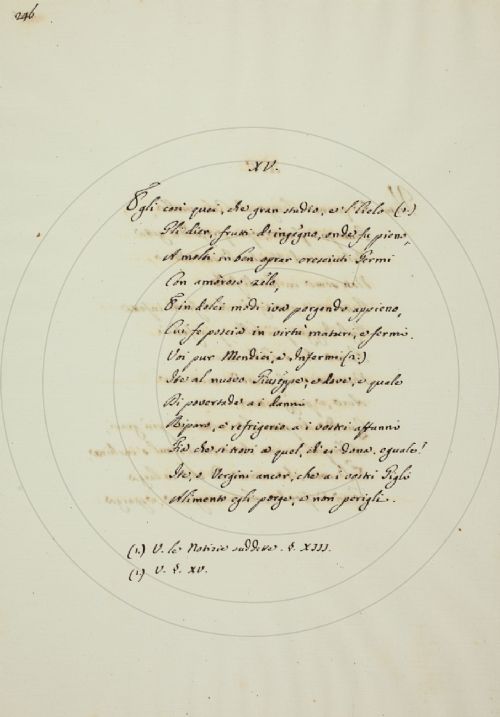 246
XV.
Egli così quei, che gran studio, e l'Cielo (1.)
Gli dier, frutti d'ingegno, onde fu pieno,
A molti in ben oprar cresciuti Germi
Con amoroso zelo,
E in dolci modi iva porgendo appieno,
Cui fe poscia in virtù maturi, e fermi.
Voi pur Mendici, e Infermi (2.)
Ite al nuovo Giuseppe, e dove, e quale
Di povertade a i danni
Riparo, e refrigerio a i vostri affanni
Fia che si trovi a quel, ch'ei dona eguale?
Ite, o Vergini ancor, che a i vostri Gigli
Alimento egli porge, e non perigli.
(1.) V. le Notizie suddire. §. XIII.
(2.) V. §. XV.